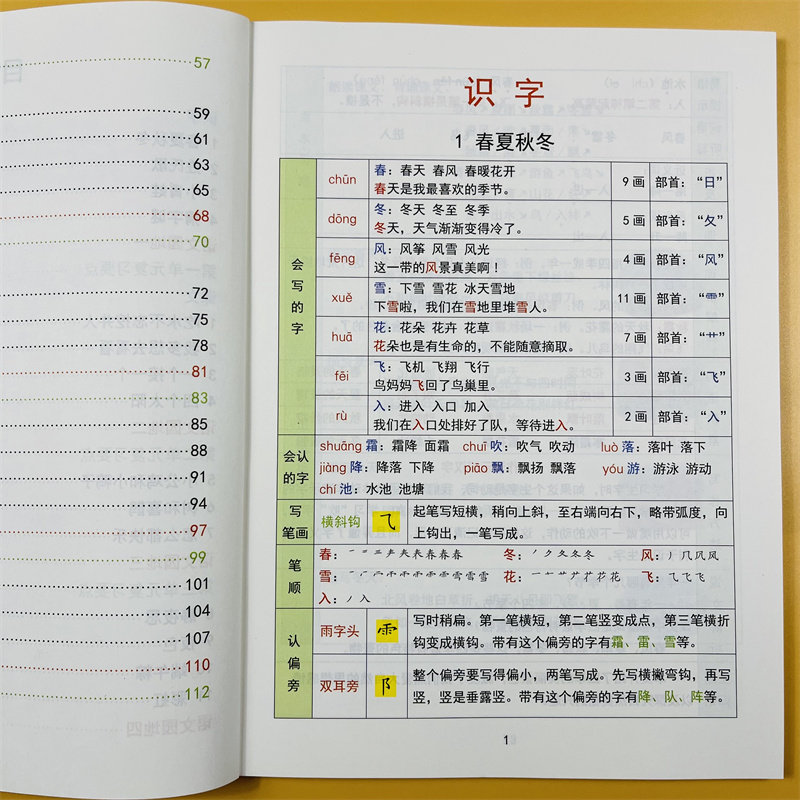 57
59
61
63
65
68
70
72
75
78
81
83
85
88
91
94
97
99
101
104
107
110
112
识字
1 春夏秋冬
会写的字
chūn 春：春天 春风 春暖花开 9画 部首：“日”
春天是我最喜欢的季节。
dōng 冬：冬天 冬至 冬季 5画 部首：“夂”
冬天，天气渐渐变得冷了。
fēng 风：风筝 风雪 风光 4画 部首：“风”
这一带的风景真美啊！
xuě 雪：下雪 雪花 冰天雪地 11画 部首：“⻗”
下雪啦，我们在雪地里堆雪人。
huā 花：花朵 花卉 花草 7画 部首：“艹”
花朵也是有生命的，不能随意摘取。
fēi 飞：飞机 飞翔 飞行 3画 部首：“飞”
鸟妈妈飞回了鸟巢里。
rù 入：进入 入口 加入 2画 部首：“入”
我们在入口处排好了队，等待进入。
会认的字
shuāng 霜：霜降 面霜 chuī 吹：吹气 吹动 luò 落：落叶 落下
jiàng 降：降落 下降 piāo 飘：飘扬 飘落 yóu 游：游泳 游动
chí 池：水池 池塘
写笔画
横斜钩 ⺄ 起笔写短横，稍向上斜，至右端向右下，略带弧度，向
上钩出，一笔写成。
笔顺
春： 冬： 风：
雪： 花： 飞：
入：
认偏旁
雨字头 ⻗ 写时稍扁。第一笔横短，第二笔竖变成点，第三笔横折
钩变成横钩。带有这个偏旁的字有霜、雷、雪等。
双耳旁 阝 整个偏旁要写得偏小，两笔写成。先写横撇弯钩，再写
竖，竖是垂露竖。带有这个偏旁的字有降、队、阵等。
1